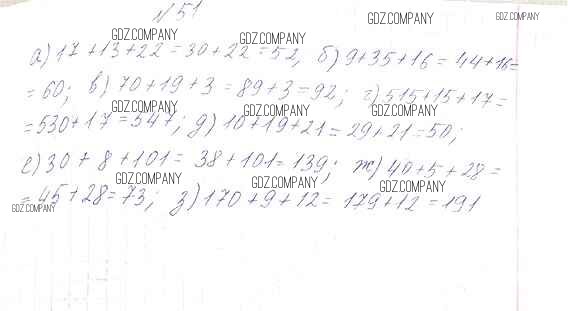 №51
GDZ.COMPANY GDZ.COMPANY
GDZ.COMPANY GDZ.COMPANY
а) 17+13+22=30+22=52, б) 9+35+16=44+16=
=60; в) 70+19+3=89+3=92; г) 515+15+17=
GDZ.COMPANY GDZ.COMPANY GDZ.COMPANY
=530+17=547; д) 10+19+21=29+21=50;
е) 30+8+101=38+101=139; ж) 40+5+28=
GDZ.COMPANY GDZ.COMPANY GDZ.COMPANY
=45+28=73; з) 170+9+12=179+12=191
GDZ.COMPANY